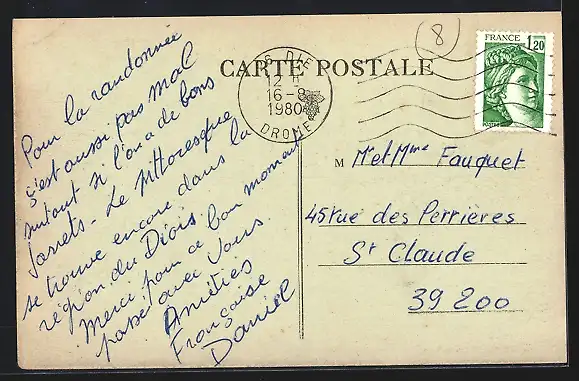 Pour la randonnée
c'est aussi pas mal
surtout si l'on a de bons
jarrets - Le pittoresque
se trouve encore dans la
région du Diois.
Merci pour ce bon moment
passé avec vous.
Amitiés
Françoise
Daniel
CARTE POSTALE
8
DIE
12 H
16-8
1980
DROME
FRANCE
1,20
M Mr et Mme Fauquet
45 rue des Perrières
St Claude
39200